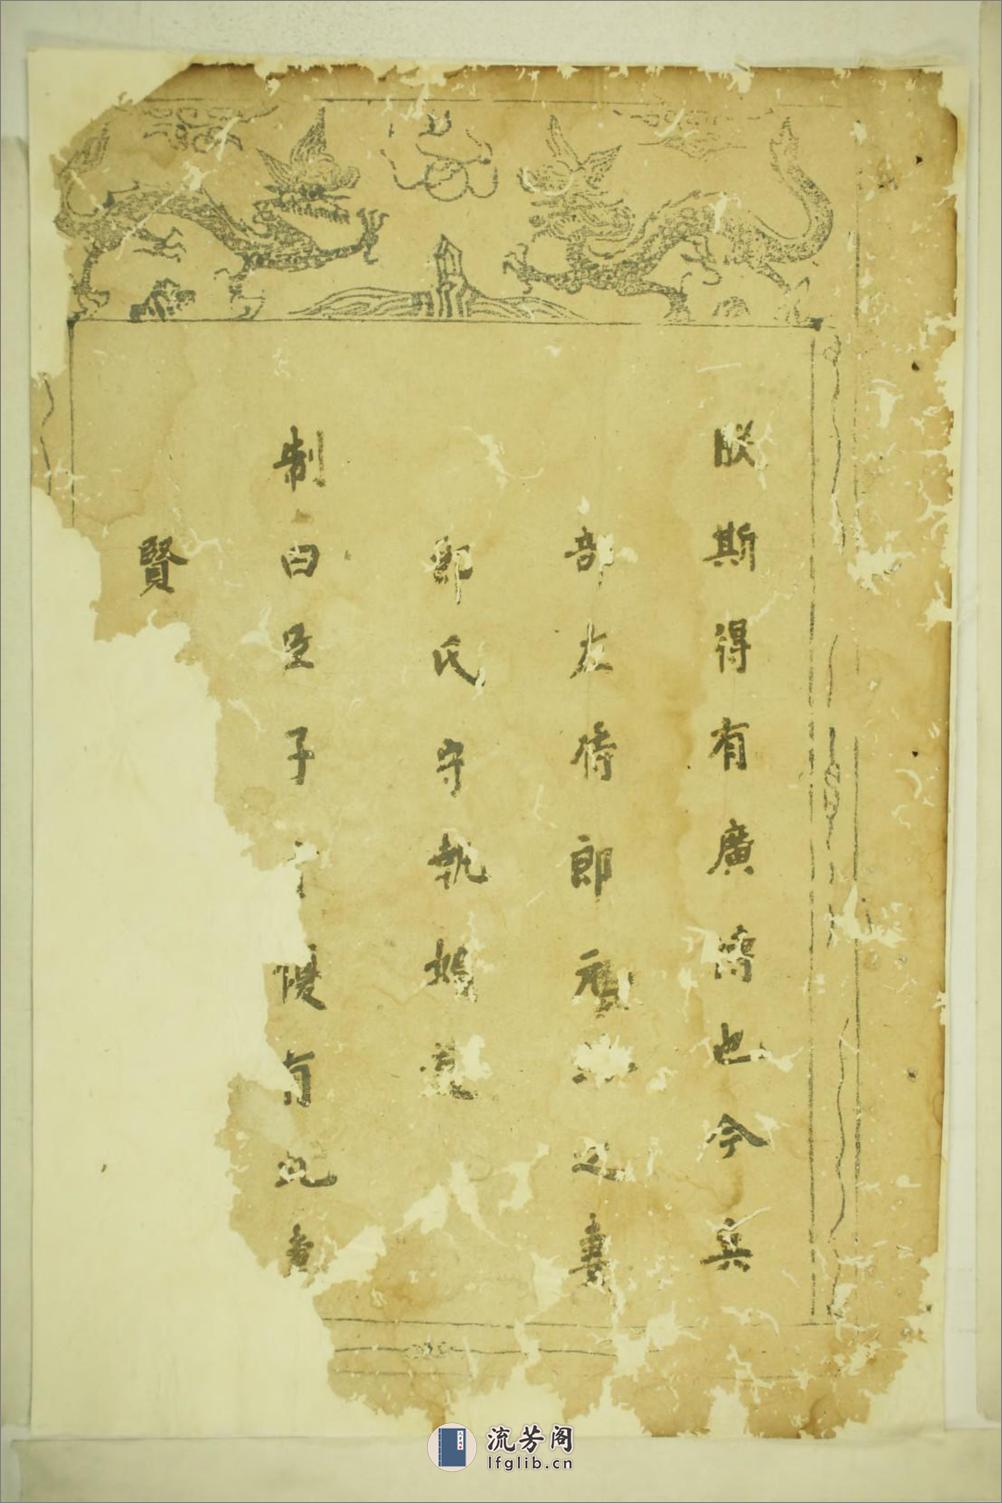 朕斯得有廣濟也今兵
部左侍郎之妻
郭氏守執婦道
制曰臣子有此
賢
流芳阁
lfglib.cn